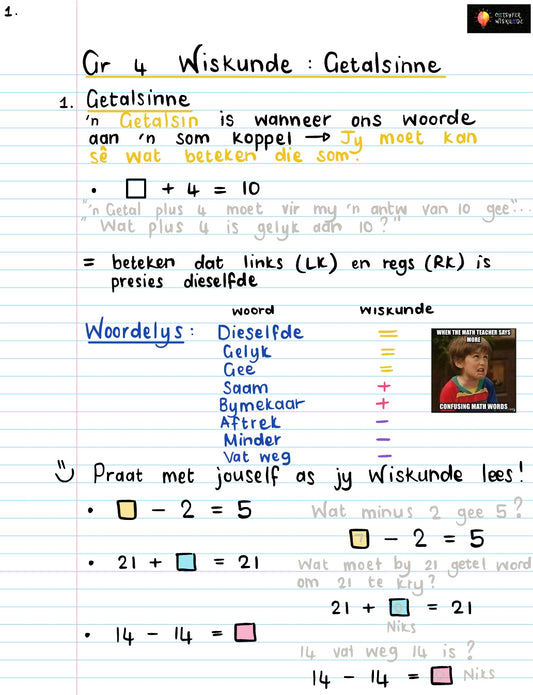 1.
ONTSYFER
WISKUNDE
Gr 4 Wiskunde : Getalsinne
1. Getalsinne
'n Getalsin is wanneer ons woorde
aan 'n som koppel → Jy moet kan
sê wat beteken die som.
• □ + 4 = 10
"'n Getal plus 4 moet vir my 'n antw van 10 gee"...
"Wat plus 4 is gelyk aan 10?"
= beteken dat links (LK) en regs (RK) is
presies dieselfde
woord wiskunde
Woordelys : Dieselfde =
Gelyk =
Gee =
Saam +
Bymekaar +
Aftrek -
Minder -
Vat weg -
WHEN THE MATH TEACHER SAYS
MORE
CONFUSING MATH WORDS
Praat met jouself as jy Wiskunde lees!
• □ - 2 = 5 Wat minus 2 gee 5?
7 - 2 = 5
• 21 + □ = 21 Wat moet by 21 getel word
om 21 te kry?
21 + □ = 21
Niks
• 14 - 14 = □
14 vat weg 14 is?
14 - 14 = □ Niks